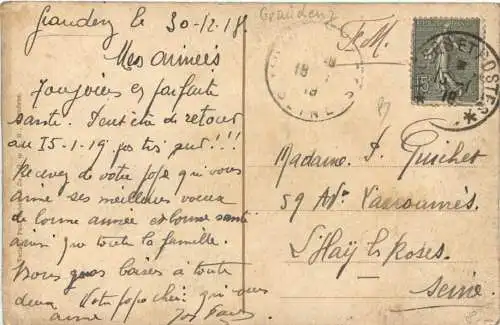 Graudenz le 30-12-18.
Mes aimées
Toujours en parfaite
santé. Peut être de retour
au 15-1-19 pas très sur!!!
Recevez de votre jojo qui vous
aime ses meilleures voeux
de bonne année et bonne santé
ainsi que toute la famille.
Bons gros baisers à toute
deux Votre jojo cheri qui vous
aime
Graudenz
F.M.
SEINE
POSTES
15
Madame J. Guichet
59 Av.
L'Haÿ les Roses.
Seine.